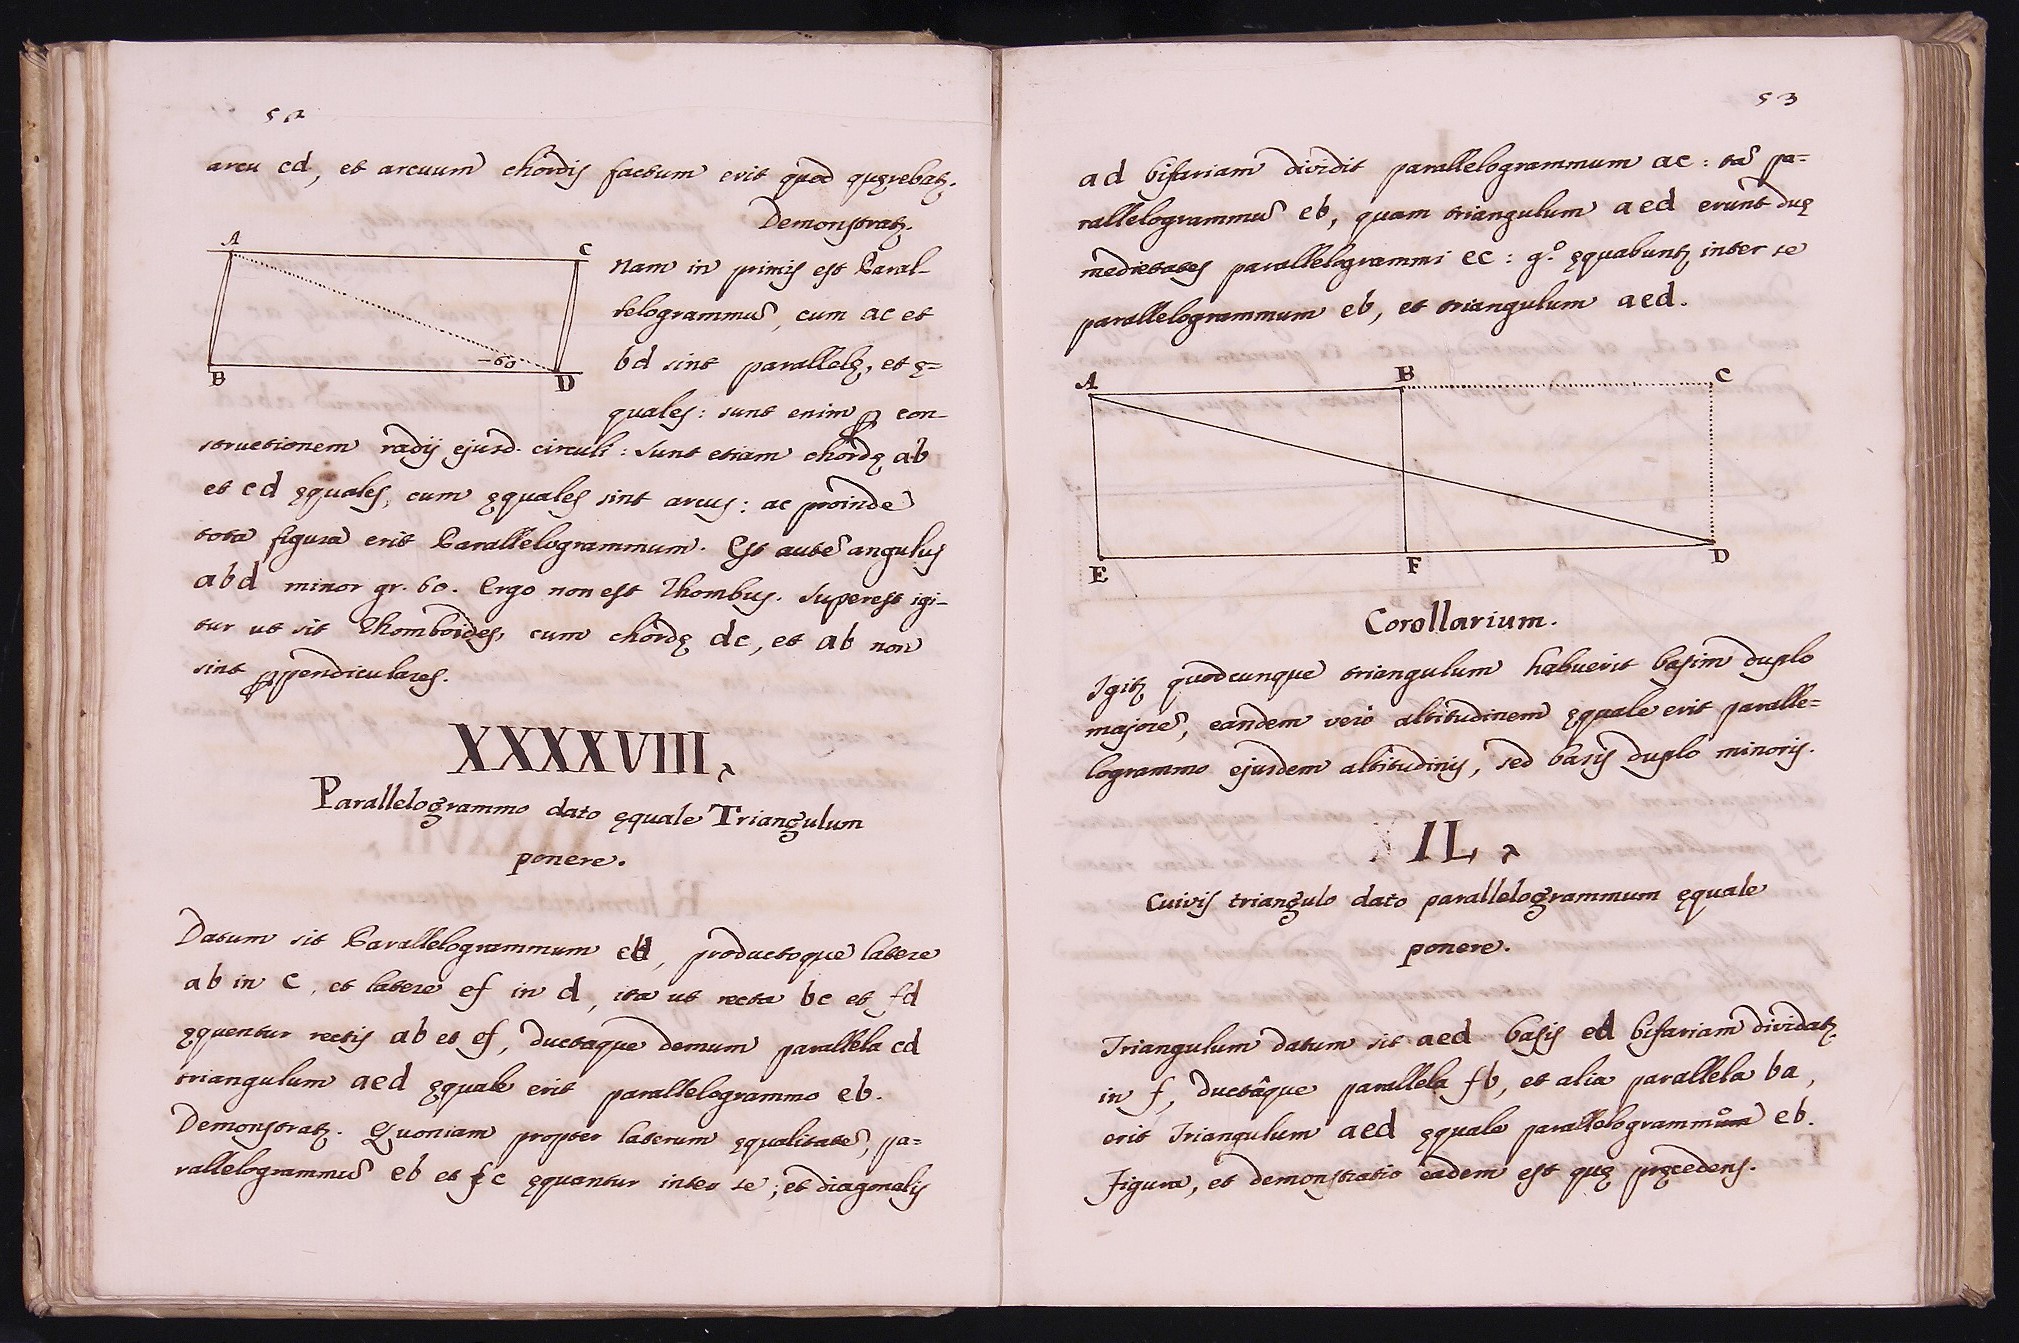 52
arcu cd, et arcuum chordis factum erit quod quęrebatʒ.
Demonstratʒ.
A C
Nam in primis est Paral-
lelogrammũ, cum ac et
bd sint parallelę, et ę=
-60
B D
quales: sunt enim ꝑ con-
structionem radij ejusd. circuli: sunt etiam chordę ab
et cd ęquales, cum ęquales sint arcus: ac proinde
tota figura erit Parallelogrammum. Est autẽ angulus
abd minor gr. 60. Ergo non est Rhombus. Superest igi-
tur ut sit Rhomboides, cum chordę dc, et ab non
sint ꝑpendiculares.
XXXXVIII
Parallelogrammo dato ęquale Triangulum
ponere.
Datum sit Parallelogrammum eb, productoque latere
ab in c, et latere ef in d, ita ut recta bc et fd
ęquentur rectis ab et ef, ductaque demum parallela cd
triangulum aed ęquale erit parallelogrammo eb.
Demonstratʒ. Quoniam propter laterum ęqualitatẽ, pa=
rallelogrammũ eb et fc ęquantur inter se; et diagonalis
53
ad bifariam dividit parallelogrammum ac: tã pa=
rallelogrammũ eb, quam triangulum aed erunt duę
medietates parallelogrammi ec: gº. ęquabuntʒ inter se
parallelogrammum eb, et triangulum aed.
A B C
E F D
Corollarium.
Igitʒ quodcunque triangulum habuerit basim duplo
majorẽ, eandem verò altitudinem ęquale erit paralle=
logrammo ejusdem altitudinis, sed basis duplo minoris.
IL
Cuivis triangulo dato parallelogrammum ęquale
ponere.
Triangulum datum sit aed basis ed bifariam dividatʒ
in f, ductâque parallela fb, et alia parallela ba,
erit Triangulum aed ęquale parallelogrammo eb.
Figura, et demonstratio eadem est quę pręcedens.